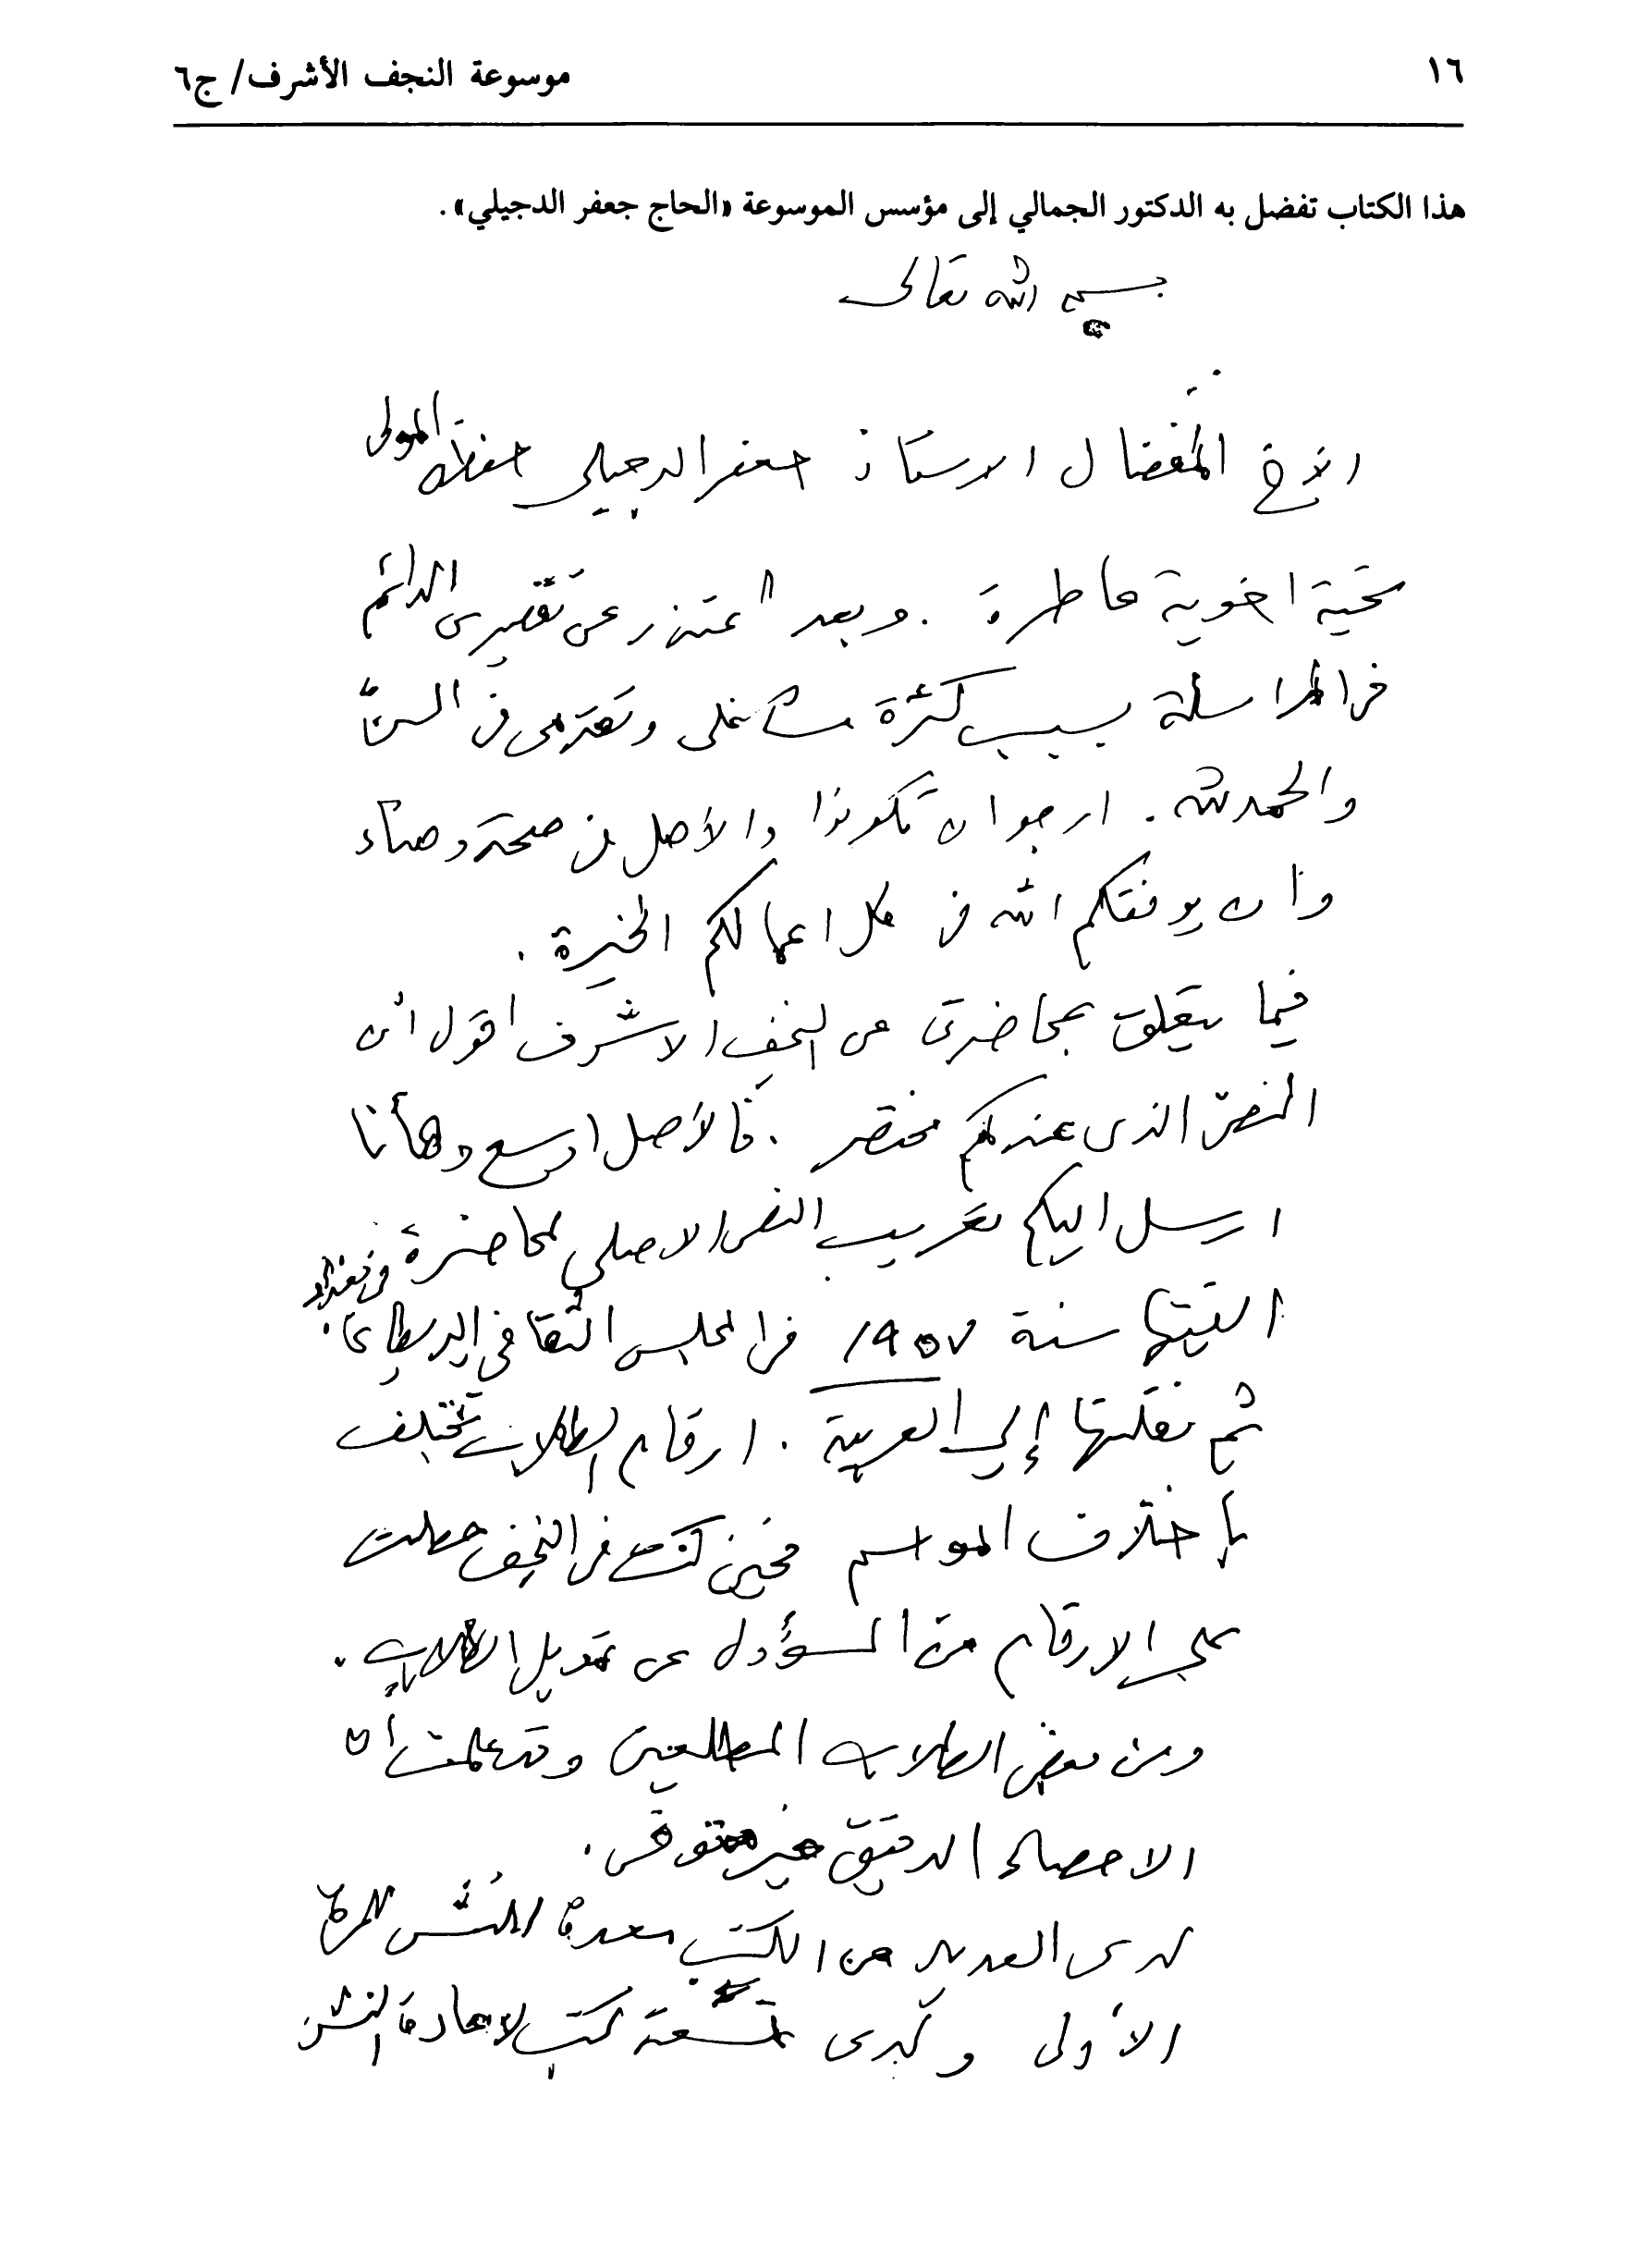 ١٦
موسوعة النجف الأشرف/ ج٦
هذا الكتاب تفضل به الدكتور الجمالي إلى مؤسس الموسوعة «الحاج جعفر الدجيلي».
بسم الله تعالى
الأخ المفضال الاستاذ جعفر الدجيلي حفظه المولى
تحية اخوية عاطرة. وبعد اعتذر عن تقصيري الدائم
في المراسلة بسبب كثرة مشاغلي وتقدمي في السنّ
والحمد لله. ارجو ان تكونوا والأهل في صحة وهناء
وأن يوفقكم الله في كل اعمالكم الخيرة.
فيما يتعلق بمحاضرتي عن النجف الاشرف اقول أن
النص الذي عندكم مختصر. فالأصل اوسع وهأنا
ارسل اليكم تعريب النص الاصلي لمحاضرة
القيتها سنة ١٩٥٧ في المجلس الثقافي البريطاني في بغداد.
ثم نقلتها إلى العربية. ارقام الطلاب تختلف
بإختلاف المواسم فحين كنت في النجف حصلت
على الارقام من المسؤول عن تمويل الطلاب.
ومن بعض الطلاب المطلعين وقد علمت ان
الاحصاء الدقيق غير متوفر.
لدي العديد من الكتب معدة للنشر للمرة
الأولى ولدي تسعة كتب لإعادة النشر